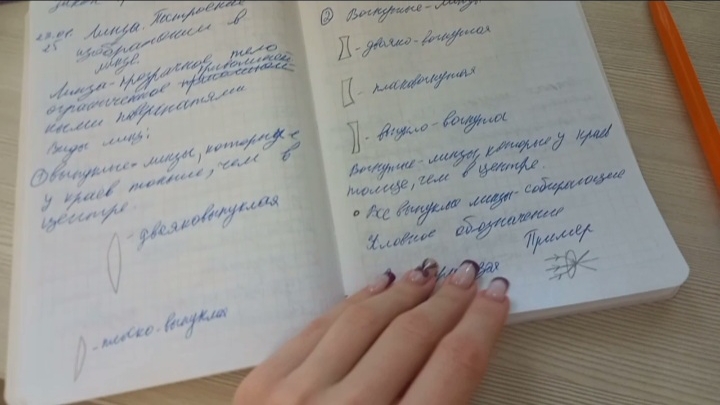 Линза. Построение
изображении в
линзе.
Линзы - прозрачное тело
ограниченное
ными
Виды линз:
① выпуклые - линзы, которые
у краев тоньше, чем в
центре.
- двояковыпуклая
- плоско-выпуклая
② Вогнутые - линзы
- двояко-вогнутая
- плосковогнутая
- выпукло-вогнутая
Вогнутые - линзы, которые у краев
толще, чем в центре.
• Все выпуклые линзы - собирающие
Условное обозначение
Пример